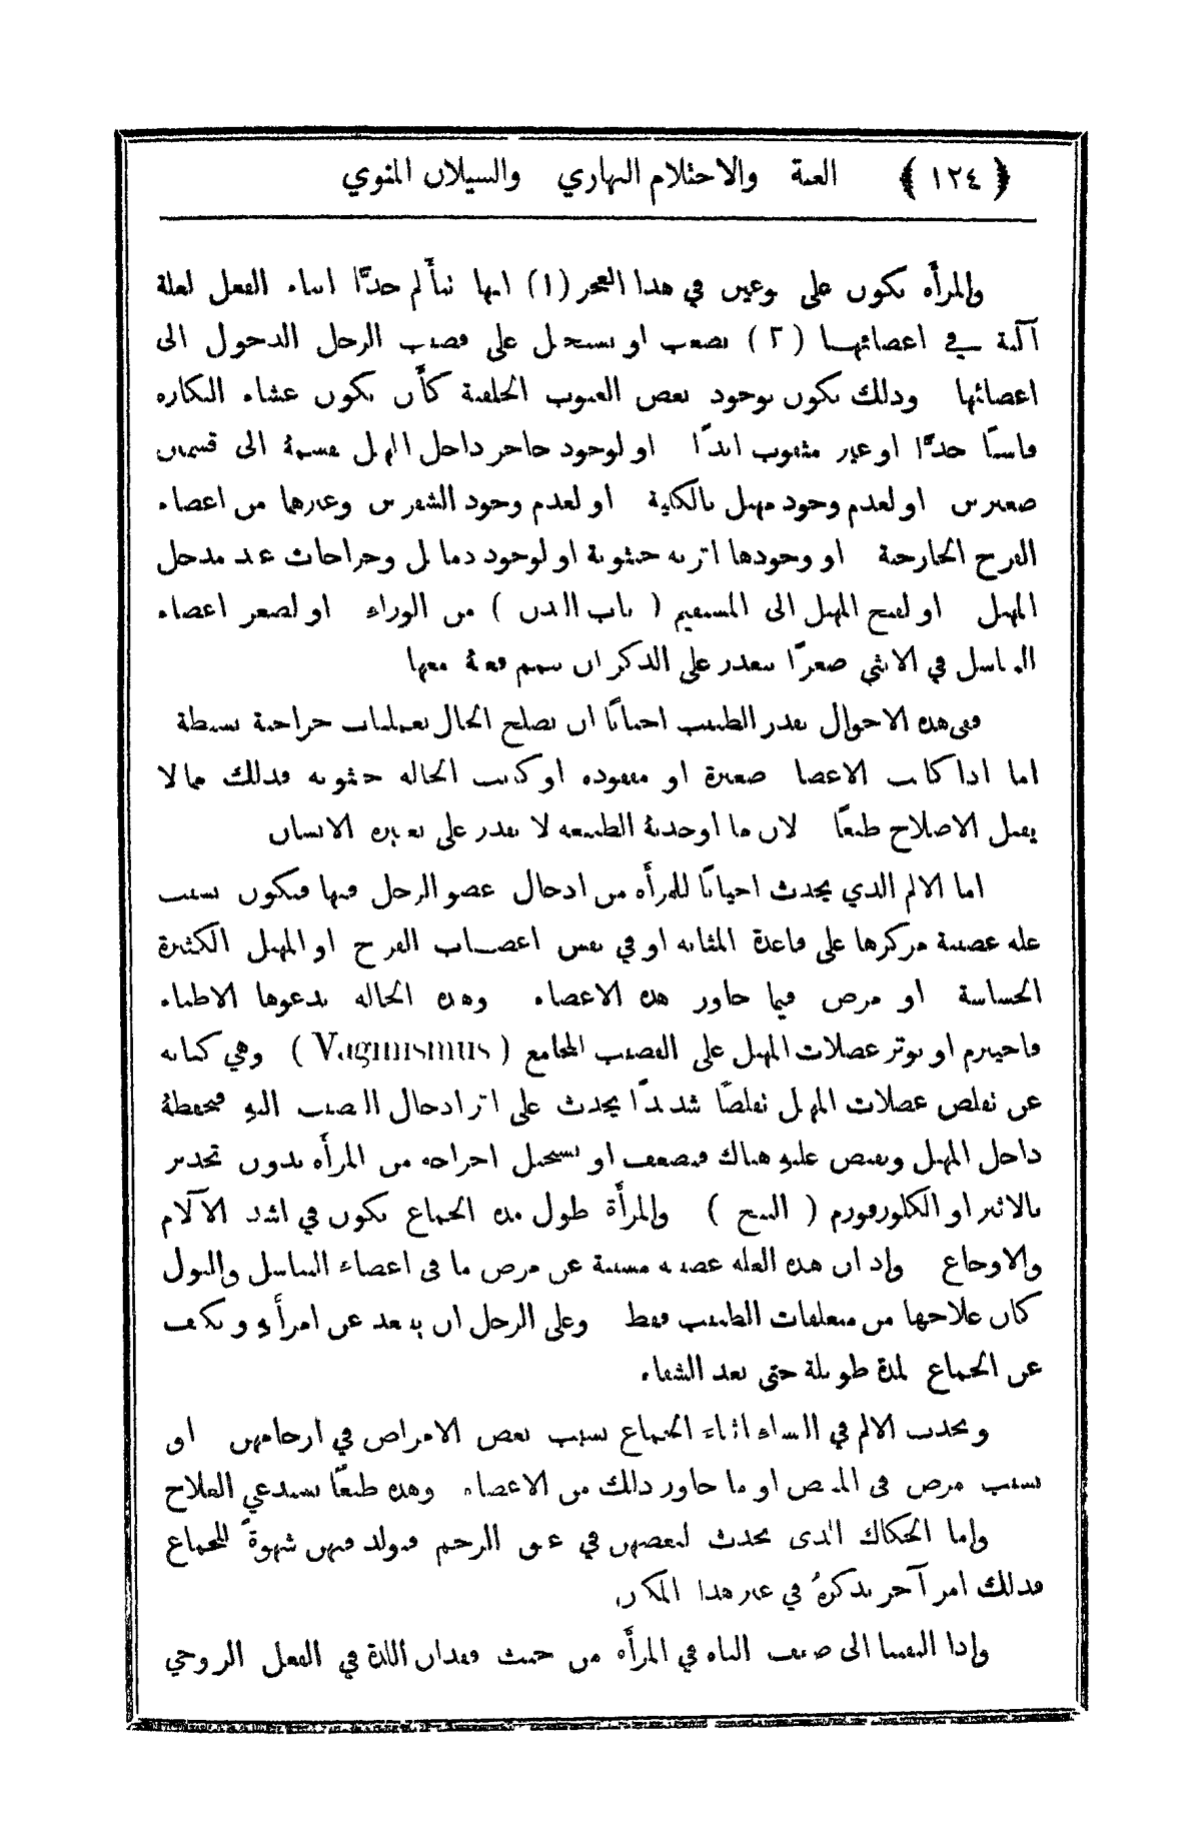 ﴿ ١٢٤ ﴾ العنة والاحتلام النهاري والسيلان المنوي
والمرأة تكون على نوعين في هذا العجز (١) انها تتألم جدًّا اثناء الفعل لعلة
آلية في اعضائها (٢) يصعب او يستحيل على قضيب الرجل الدخول الى
اعضائها وذلك يكون بوجود بعض العيوب الخلقية كأن يكون غشاء البكارة
قاسيًا جدًّا او غير مثقوب ابدًا او لوجود حاجز داخل المهبل يقسمه الى قسمين
صغيرين او لعدم وجود مهبل بالكلية او لعدم وجود الشفرين وغيرهما من اعضاء
الفرج الخارجية او وجودها اثرية خنثوية او لوجود دمامل وجراحات عند مدخل
المهبل او لفتح المهبل الى المستقيم ( باب البدن ) من الوراء او لصغر اعضاء
التناسل في الانثى صغرًا يتعذر على الذكر ان يتمم فعله معها
ففي هذه الاحوال يقدر الطبيب احيانًا ان يصلح الحال بعمليات جراحية بسيطة
اما اذا كانت الاعضا صغيرة او مفقوده او كانت الحاله خنثويه فذلك مما لا
يقبل الاصلاح طبعًا لان ما اوجدته الطبيعه لا يقدر على تغييره الانسان
اما الالم الذي يحدث احيانًا للمرأه من ادخال عضو الرجل فيها فيكون بسبب
عله عصبية مركزها على قاعدة المثانه او في نفس اعصاب الفرج او المهبل الكثيرة
الحساسة او مرض فيما جاور هذه الاعضاء وهذه الحاله يدعوها الاطباء
فاجينزم او توتر عضلات المهبل على القضيب المجامع ( Vaginismus ) وهي كنايه
عن تقلص عضلات المهبل تقلصًا شديدًا يحدث على اثر ادخال القضيب اليه فتحفظه
داخل المهبل وتقبض عليه هناك فيصعب او يستحيل اخراجه من المرأه بدون تخدير
بالاثير او الكلوروفورم ( البنج ) والمرأة طول مدة الجماع تكون في اشد الآلام
والاوجاع واذ ان هذه العله عصبيه مسببة عن مرض ما في اعضاء التناسل والبول
كان علاجها من متعلقات الطبيب فقط وعلى الرجل ان يبتعد عن امرأته ويكف
عن الجماع لمدة طويلة حتى بعد الشفاء
ويحدث الالم في النساء اثناء الجماع بسبب بعض الامراض في ارحامهن او
بسبب مرض في المبيض او ما جاور ذلك من الاعضاء وهذه طبعًا تستدعي العلاج
واما الحكاك الذي يحدث لبعضهن في عنق الرحم فيولد فيهن شهوةً للجماع
فذلك امر آخر نذكرهُ في غير هذا المكان
واذا التفتنا الى ضعف الباه في المرأه من حيث فقدان اللذة في الفعل الزوجي